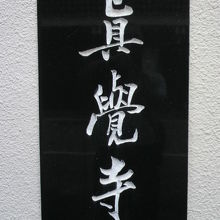 眞覺寺